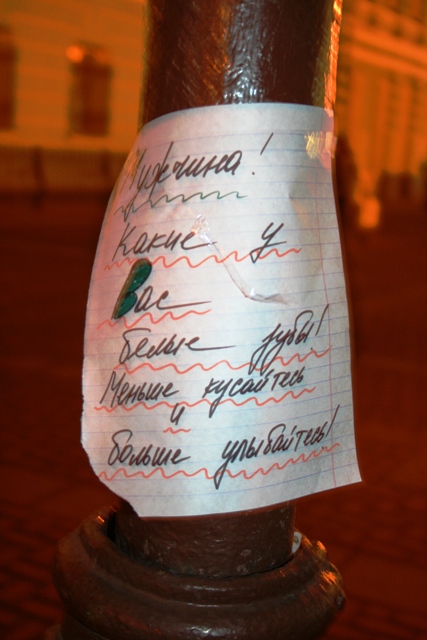 Мужчина!
Какие у
Вас
белые зубы!
Меньше кусайтесь
и
больше улыбайтесь!